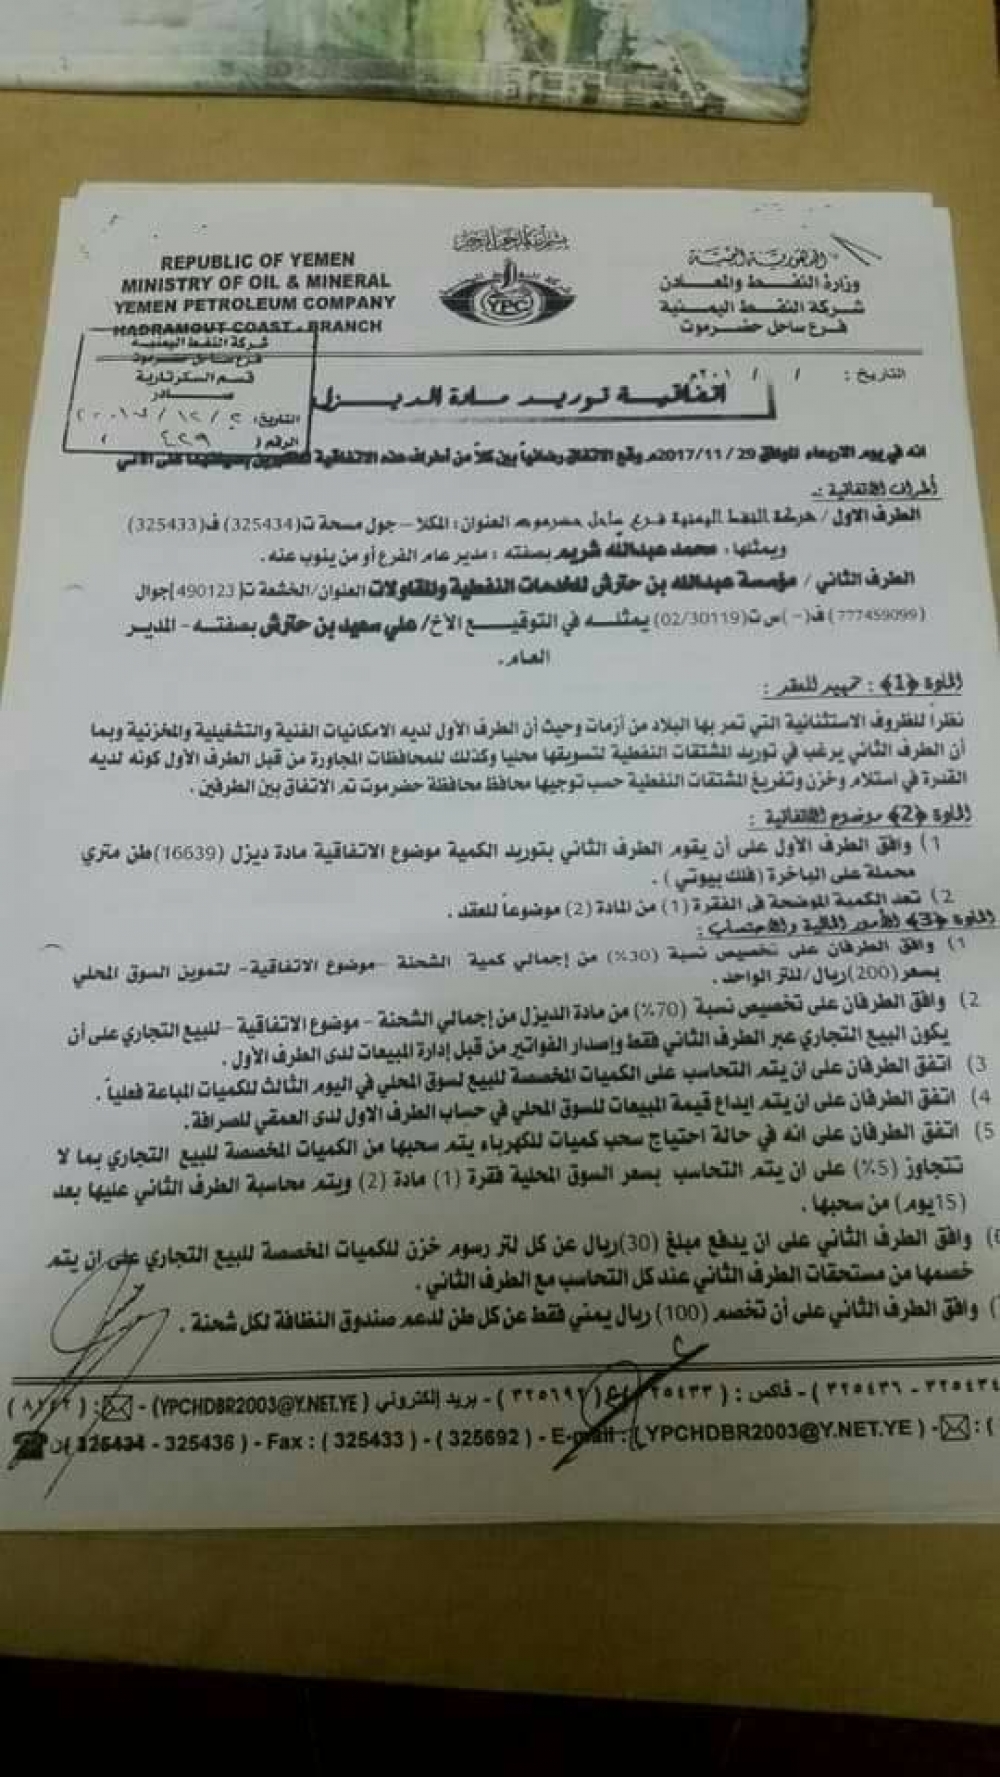 بسم الله الرحمن الرحيم
الجمهورية اليمنية
وزارة النفط والمعادن
شركة النفط اليمنية
فرع ساحل حضرموت
REPUBLIC OF YEMEN
MINISTRY OF OIL & MINERAL
YEMEN PETROLEUM COMPANY
HADRAMOUT COAST - BRANCH
YPC
شركة النفط اليمنية
فرع ساحل حضرموت
قسم السكرتارية
صادر
التاريخ:
الرقم ( ٤٢٩ )
التاريخ : / / ٢٠١م
اتفاقية توريد مادة الديزل
انه في يوم الاربعاء الموافق 29 /11/ 2017م وقع الاتفاق رضائياً بين كلاً من أطراف هذه الاتفاقية
أطراف الاتفاقية :-
الطرف الاول / شركة النفط اليمنية فرع ساحل حضرموت العنوان : المكلا – جول مسحة ت(325434) ف(325433)
ويمثلها : محمد عبدالله شريم بصفته : مدير عام الفرع أو من ينوب عنه .
الطرف الثاني / مؤسسة عبدالله بن حترش للخدمات النفطية والمقاولات العنوان/الخشعة ت[490123]جوال
(777459099) ف(-)س ت(02/30119) يمثله في التوقيع الأخ/ علي سعيد بن حترش بصفته - المدير
العام.
المادة ﴿1﴾ : تمهيد للعقد :
نظراً للظروف الاستثنائية التي تمر بها البلاد من أزمات وحيث أن الطرف الأول لديه الامكانيات الفنية والتشغيلية والمخزنية وبما
أن الطرف الثاني يرغب في توريد المشتقات النفطية لتسويقها محليا وكذلك للمحافظات المجاورة من قبل الطرف الأول كونه لديه
القدرة في استلام وخزن وتفريغ المشتقات النفطية حسب توجيها محافظ محافظة حضرموت تم الاتفاق بين الطرفين .
المادة ﴿2﴾ موضوع الاتفاقية :
1) وافق الطرف الأول على أن يقوم الطرف الثاني بتوريد الكمية موضوع الاتفاقية مادة ديزل (16639) طن متري
محملة على الباخرة (فلك بيوتي) .
2) تعد الكمية الموضحة في الفقرة (1) من المادة (2) موضوعاً للعقد .
المادة ﴿3﴾ الأمور المالية والاحتساب :
1) وافق الطرفان على تخصيص نسبة (30%) من إجمالي كمية الشحنة -موضوع الاتفاقية- لتموين السوق المحلي
بسعر (200)ريال/للتر الواحد .
2) وافق الطرفان على تخصيص نسبة (70%) من مادة الديزل من إجمالي الشحنة - موضوع الاتفاقية -للبيع التجاري على أن
يكون البيع التجاري عبر الطرف الثاني فقط وإصدار الفواتير من قبل إدارة المبيعات لدى الطرف الأول .
3) اتفق الطرفان على ان يتم التحاسب على الكميات المخصصة للبيع لسوق المحلي في اليوم الثالث للكميات المباعة فعلياً .
4) اتفق الطرفان على ان يتم إيداع قيمة المبيعات للسوق المحلي في حساب الطرف الاول لدى العمقي للصرافة.
5) اتفق الطرفان على انه في حالة احتياج سحب كميات للكهرباء يتم سحبها من الكميات المخصصة للبيع التجاري بما لا
تتجاوز (5%) على ان يتم التحاسب بسعر السوق المحلية فقرة (1) مادة (2) ويتم محاسبة الطرف الثاني عليها بعد
(15يوم) من سحبها .
وافق الطرف الثاني على ان يدفع مبلغ (30)ريال عن كل لتر رسوم خزن للكميات المخصصة للبيع التجاري على ان يتم
خصمها من مستحقات الطرف الثاني عند كل التحاسب مع الطرف الثاني .
وافق الطرف الثاني على أن تخصم (100) ريال يمني فقط عن كل طن لدعم صندوق النظافة لكل شحنة .
٣٢٥٤٣٤ - ٣٢٥٤٣٦ ) - فاكس : ( ٣٢٥٤٣٣ ) ( ٣٢٥٦٩٢ ) - بريد إلكتروني ( YPCHDBR2003@Y.NET.YE) -
( 325434 - 325436 ) - Fax : ( 325433 ) - ( 325692 ) - E-mail : ( YPCHDBR2003@Y.NET.YE ) -